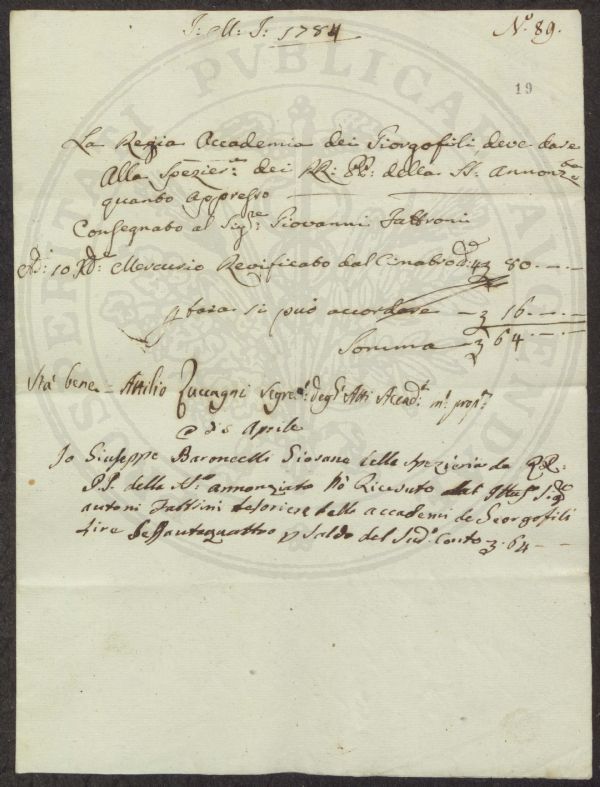 J: M: J: 1784
N.° 89.
19
La Regia Accademia dei Giorgofili deve dare
Alla Spezier.ª dei RR: PP: della SS. Annonz.ta
quanto appresso
Consegnato al Sig.re Giovanni Fabbroni
Mercurio Revificato dal Cinabro 80
tara si può accordare 16
Somma 64
Sta bene = Attilio Zuccagni Segre.º degl'Atti Accad.ci m.º prop.ª
A dì 6 Aprile
Io Giuseppe Baroncelli Giovane della Spezieria de RR:
P.P. della SS.ma annonziata hò Ricevuto dal Sig.re
antoni Fabbrini tesoriere dell accademi de Georgofili
Lire Sessantaquattro p Saldo del Sud.º Conto 64